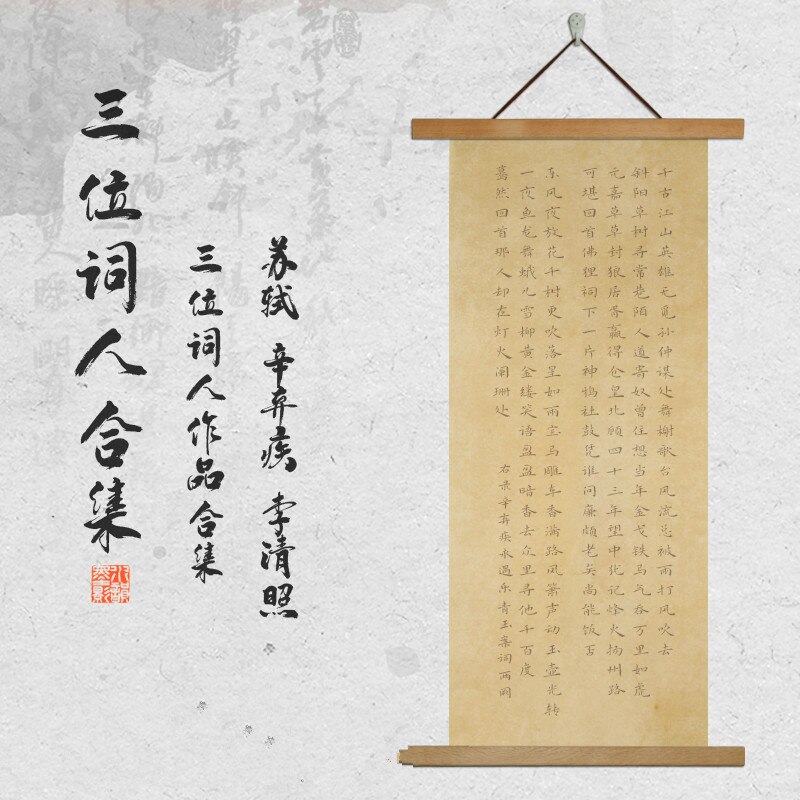 三位词人合集
三位词人作品合集
苏轼 辛弃疾 李清照
千古江山英雄无觅孙仲谋处舞榭歌台风流总被雨打风吹去
斜阳草树寻常巷陌人道寄奴曾住想当年金戈铁马气吞万里如虎
元嘉草草封狼居胥赢得仓皇北顾四十三年望中犹记烽火扬州路
可堪回首佛狸祠下一片神鸦社鼓凭谁问廉颇老矣尚能饭否
东风夜放花千树更吹落星如雨宝马雕车香满路凤箫声动玉壶光转
一夜鱼龙舞蛾儿雪柳黄金缕笑语盈盈暗香去众里寻他千百度
蓦然回首那人却在灯火阑珊处
右录辛弃疾永遇乐青玉案词两阕